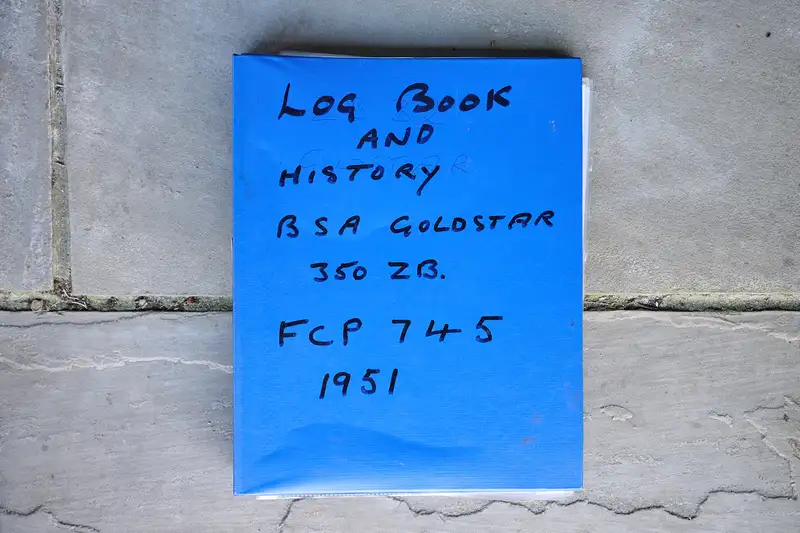 LOG BOOK
AND
HISTORY
BSA GOLDSTAR
350 ZB.
FCP 745
1951